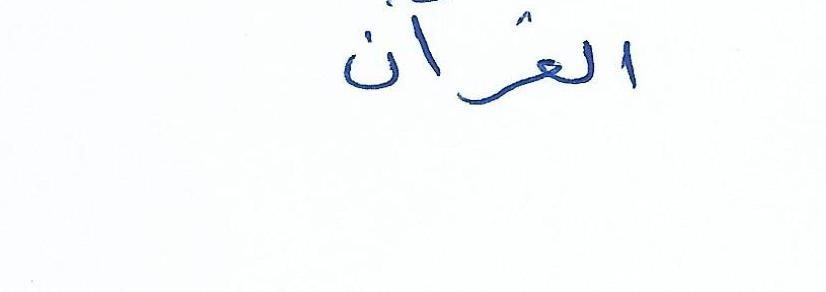 القرآن